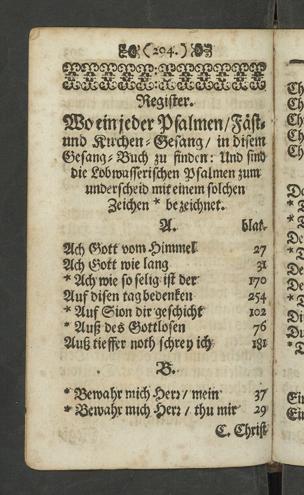 (204.)
Register.
Wo ein jeder Psalmen / Fäst-
und Kirchen-Gesang / in disem
Gesang-Buch zu finden: Und sind
die Lobwasserischen Psalmen zum
underscheid mit einem solchen
Zeichen * bezeichnet.
A. blat.
Ach Gott vom Himmel 27
Ach Gott wie lang 31
* Ach wie so selig ist der 170
Auf disen tag bedenken 254
* Auf Sion dir geschicht 102
* Auß des Gottlosen 76
Auß tieffer noth schrey ich 181
B.
* Bewahr mich Herr / mein 37
* Bewahr mich Herr / thu mir 29
C. Christ